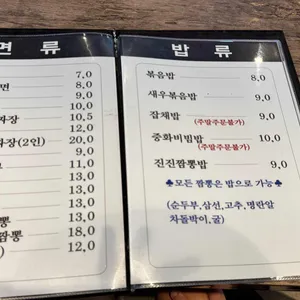 면 류
7,0
면 8,0
9,0
10,0
짜장 10,5
12,0
짜장(2인) 20,0
11,0
13,0
13,0
13,0
13,0
뽕 13,0
짬뽕 18,0
) 12,0
밥 류
볶음밥 8,0
새우볶음밥 9,0
잡채밥 9,0
(주말주문불가)
중화비빔밥 10,0
(주말주문불가)
진진짬뽕밥 9,0
♣모든 짬뽕은 밥으로 가능♣
(순두부,삼선,고추,명란알
차돌박이,굴)